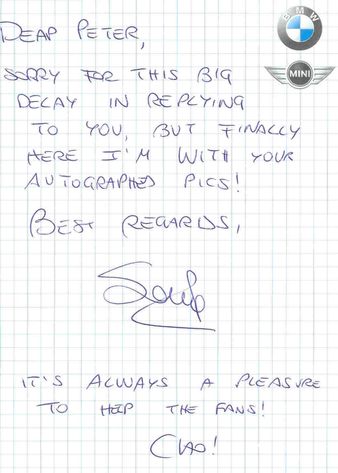 DEAR PETER,
BMW
SORRY FOR THIS BIG
MINI
DELAY IN REPLYING
TO YOU, BUT FINALLY
HERE I'M WITH YOUR
AUTOGRAPHED PICS!
BEST REGARDS,
IT'S ALWAYS A PLEASURE
TO HELP THE FANS!
CIAO!